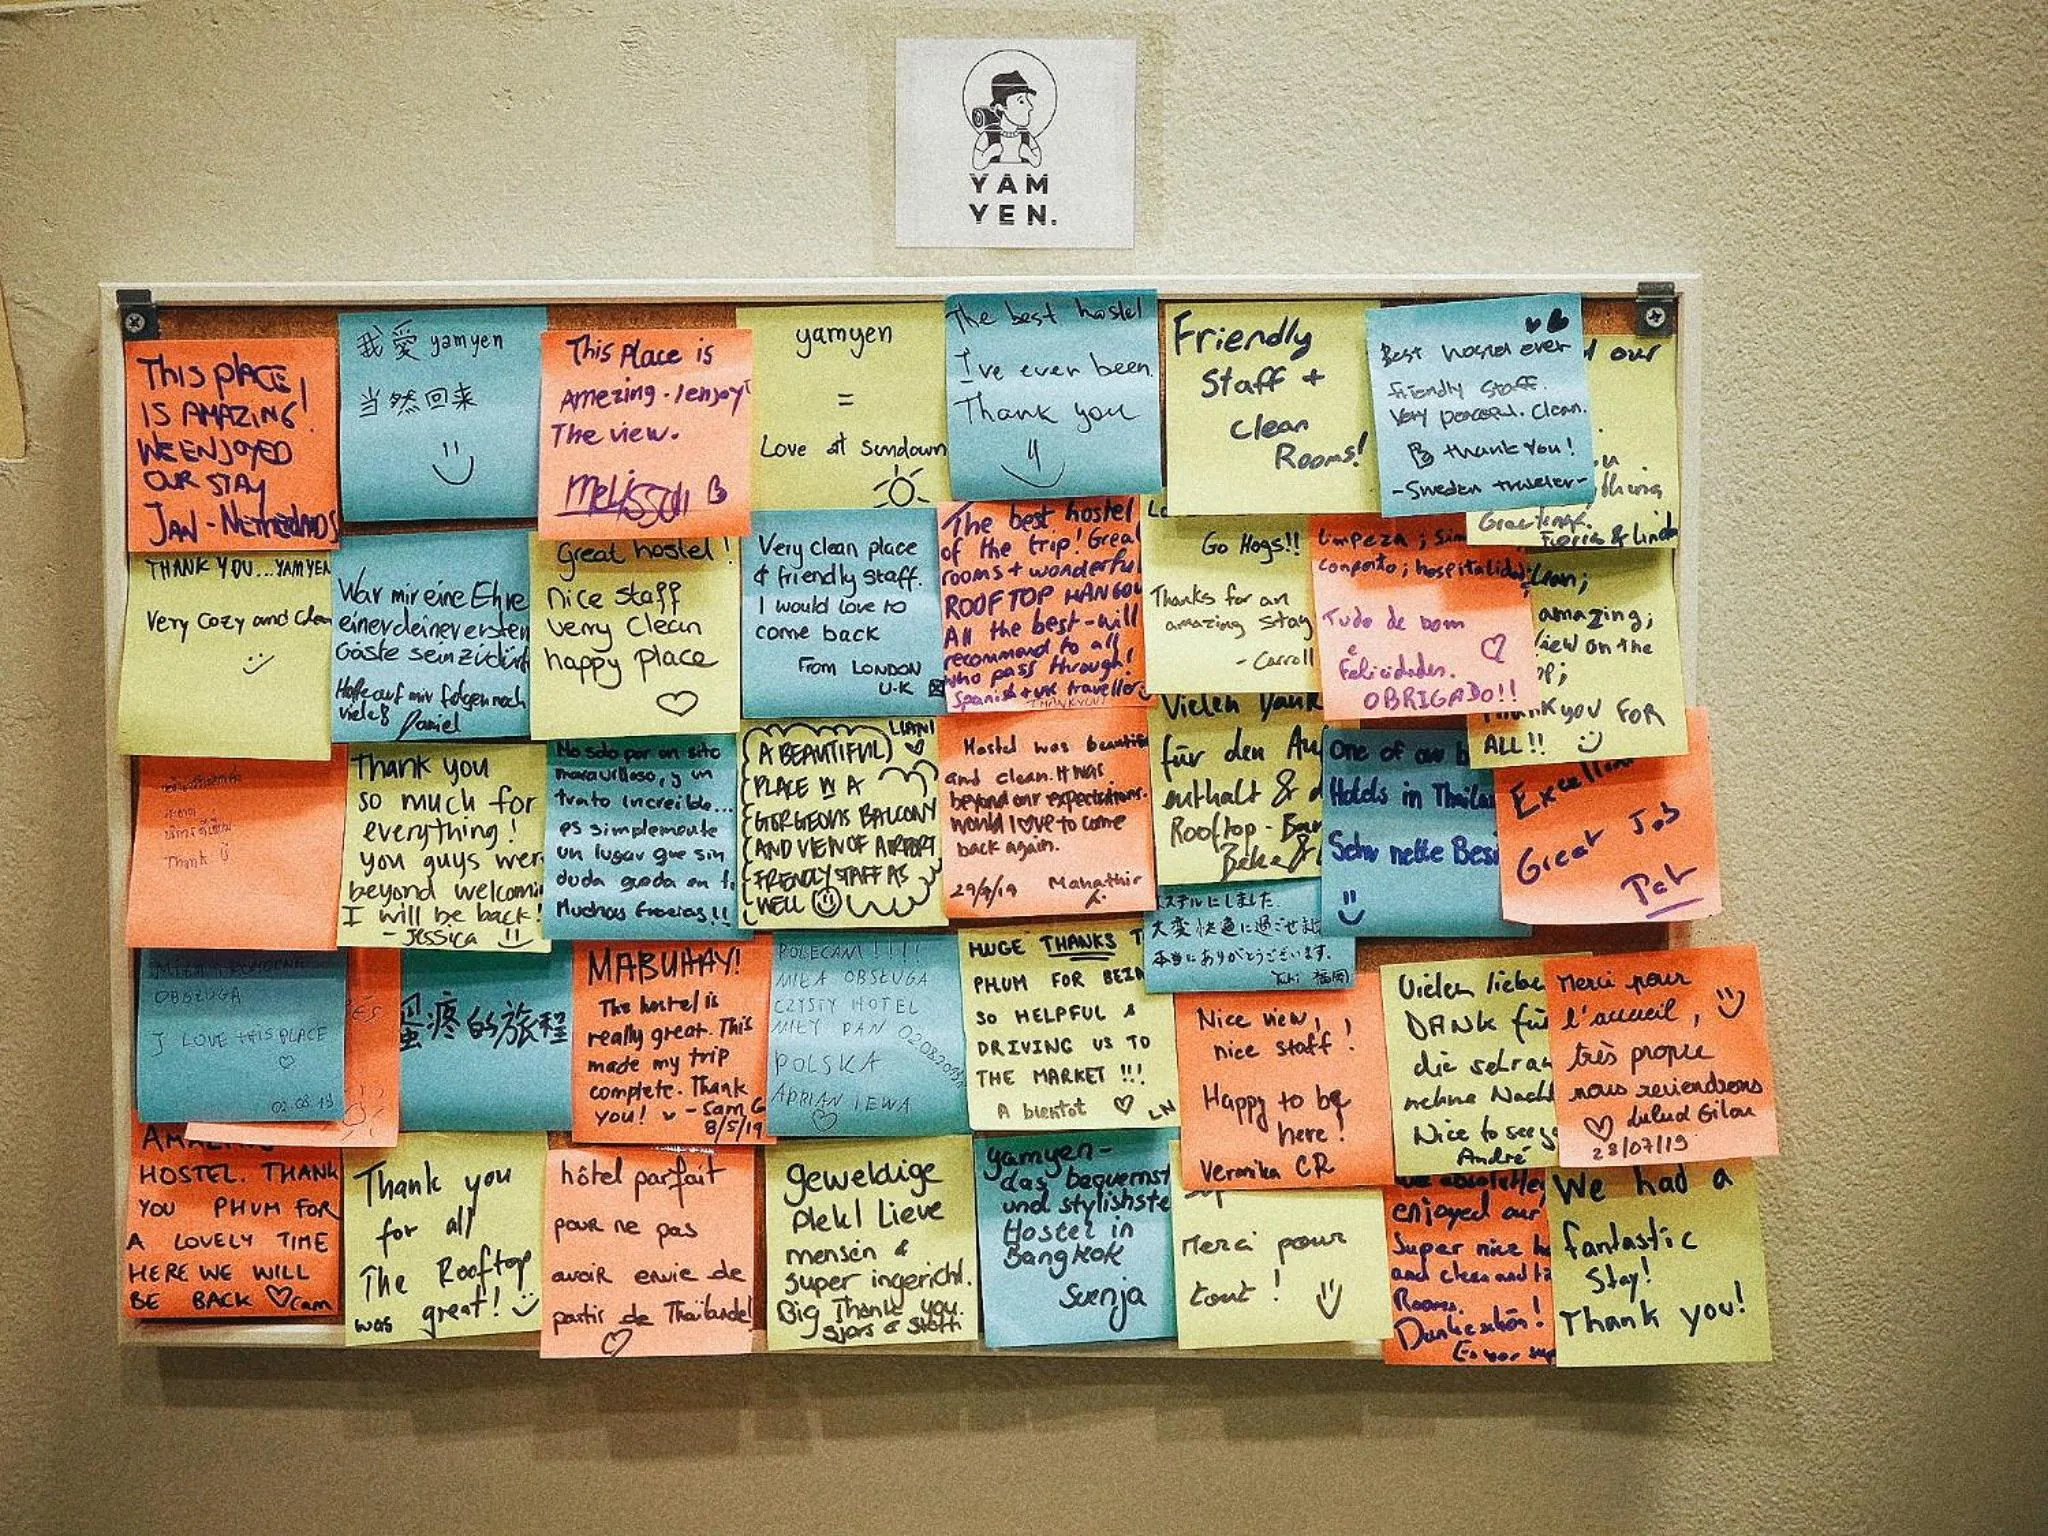 YAM
YEN.
THIS PLACE
IS AMAZING!
WE ENJOYED
OUR STAY
JAN - NETHERLANDS
我愛 yamyen
当然回来
This Place is
Amezing. I enjoy
The view.
Melissa
yamyen
=
Love at sundown
The best hostel
I've ever been.
Thank you
Friendly
Staff +
clean
Rooms!
Best hostel ever
friendly staff.
Very peaceful. Clean.
thank You!
-Sweden traveler-
d our
thing
Greetings.
Fioria & Linda
THANK YOU...YAMYEN
Very cozy and clean
War mir eine Ehre
einer deiner ersten
Gäste sein zu dürf
Hoffe auf mir folgen noch
viele
Daniel
Great hostel!
nice staff
very clean
happy place
Very clean place
& friendly staff.
I would love to
come back
From LONDON
U.K
The best hostel
of the trip! Grea
rooms + wonderful
ROOFTOP HANGOU
All the best - will
recommend to all
who pass through!
Spanish + UK traveller
THANKYOU
Go Hogs!!
Thanks for an
amazing stay
- Carroll
Limpeza; Sim
conforto; hospitalidad
Tudo de bom
e
Felicidades.
OBRIGADO!!
Clean;
amazing;
view on the
op;
THANK YOU FOR
ALL!!
Thank U
Thank you
so much for
everything!
you guys wer
beyond welcomi
I will be back!
- Jessica
No solo por un sitio
maravilloso, y un
trato increible...
es simplemente
un lugar que sin
duda queda en
Muchas Gracias!!
LIANI
A BEAUTIFUL
PLACE IN A
GORGEOUS BALCONY
AND VIEW OF AIRPORT
FRIENDLY STAFF AS
WELL
Hostel was beautif
and clean. It was
beyond our expectations.
would love to come
back again.
29/4/19 Mahathir
Vielen Dank
für den Au
enthalt & d
Rooftop - Bar
Beke &
One of our b
Hotels in Thaila
Sehr nette Besi
Excellent
Great Job
Pat
OBSŁUGA
I LOVE THIS PLACE
02.08.19
蛋疼的旅程
MABUHAY!
The hostel is
really great. This
made my trip
complete. Thank
you! - Sam G
8/5/19
POLECAM!!!!
MIŁA OBSŁUGA
CZYSTY HOTEL
MIŁY PAN
02.08.2019
POLSKA
ADRIAN IEWA
HUGE THANKS T
PHUM FOR BEIN
SO HELPFUL &
DRIVING US TO
THE MARKET!!!
A bientôt LN
ステルにしました.
大変快適に過ごせま
本当にありがとうございます.
Yuki 福岡
Nice view,
nice staff!
Happy to be
here!
Veronika CR
Vielen liebe
DANK für
die sehr an
nehme Nacht
Nice to see y
André
Merci pour
l'accueil,
très propre
nous reviendrons
Lulud Gilou
28/07/19
AMAZING
HOSTEL. THANK
YOU PHUM FOR
A LOVELY TIME
HERE WE WILL
BE BACK Cam
Thank you
for all
The Rooftop
was great!
hôtel parfait
pour ne pas
avoir envie de
partir de Thaïlande!
Geweldige
plek! Lieve
mensen &
super ingericht.
Big Thank you.
Sjors & Steffi
yamyen -
das bequemst
und stylishste
Hostel in
Bangkok
Svenja
Merci pour
tout!
we absolutely
enjoyed our
Super nice h
and clean and
Rooms.
Dankeschön!
Es war sup
We had a
fantastic
Stay!
Thank you!